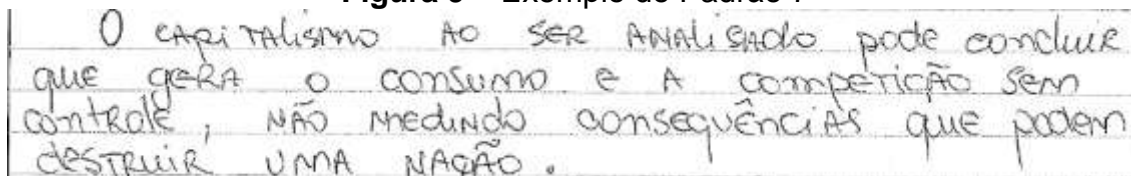 O capitalismo ao ser analisado pode concluir
que gera o consumo e a competição sem
controle, não medindo consequências que podem
destruir uma nação.